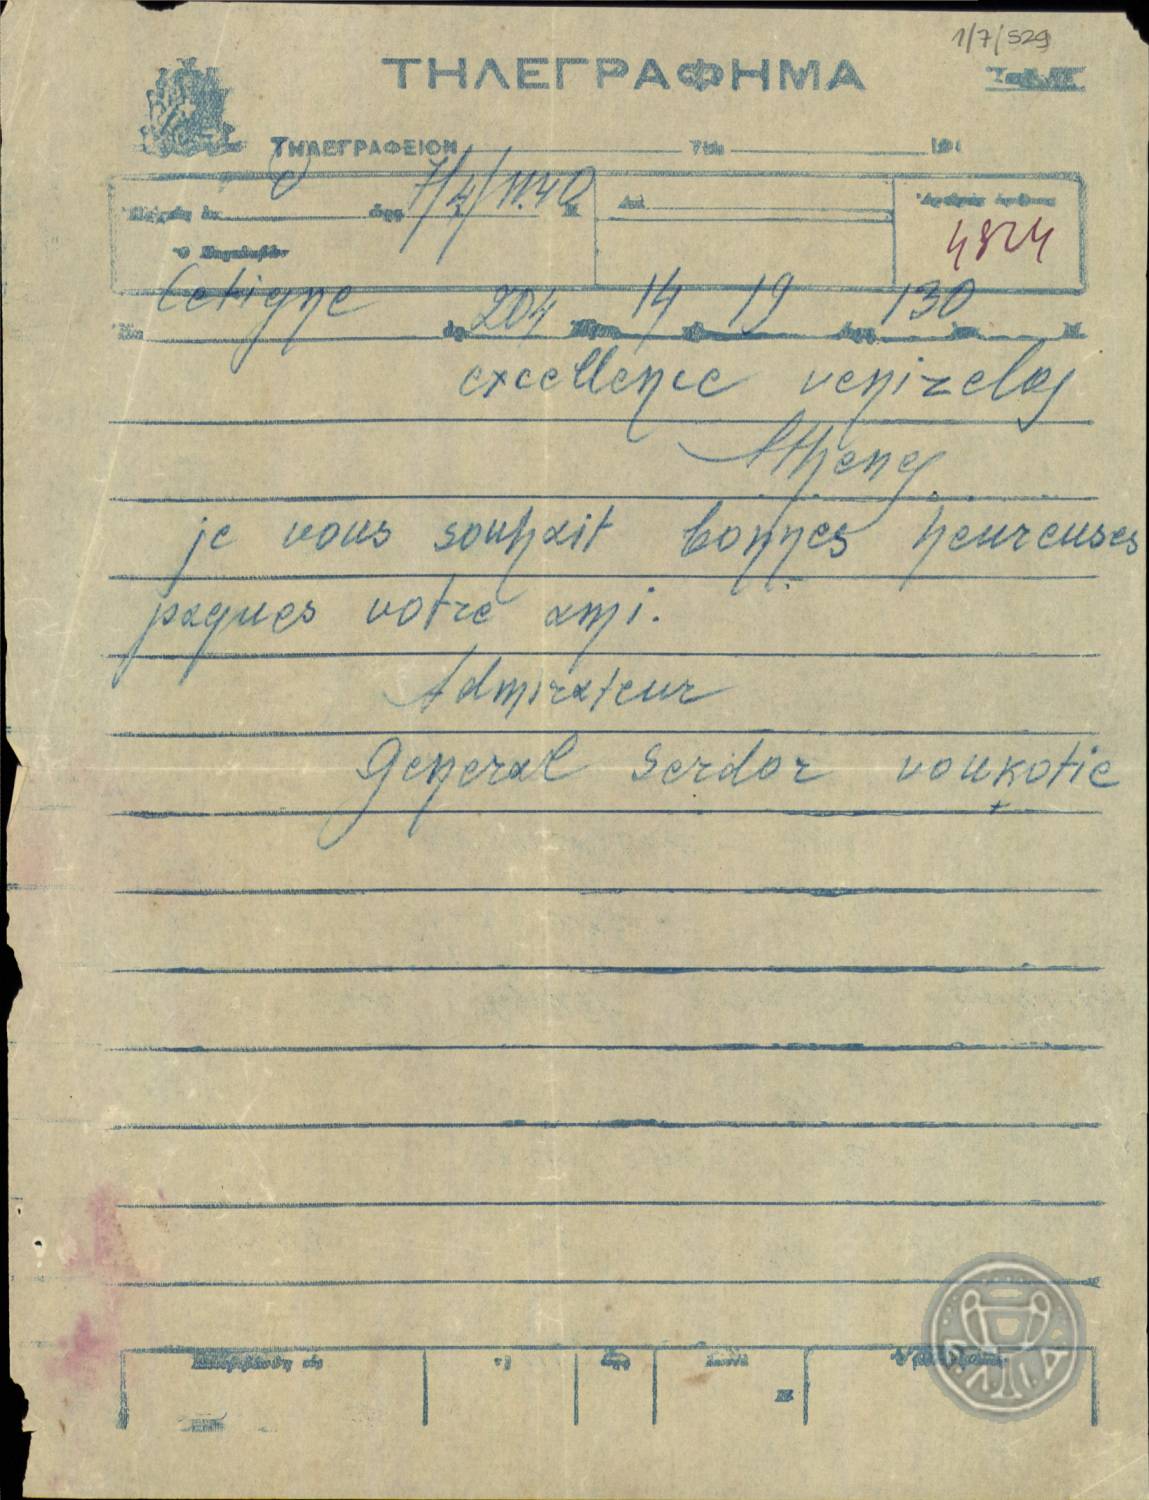 1/7/529
ΤΗΛΕΓΡΑΦΗΜΑ
ΤΗΛΕΓΡΑΦΕΙΟΝ
7/4/11.40
4824
Cetigne 204 14 19 130
excellence venizelos
Athenes
je vous souhait bonnes heureuses
paques votre ami.
Admirateur
General Serdar voukotic